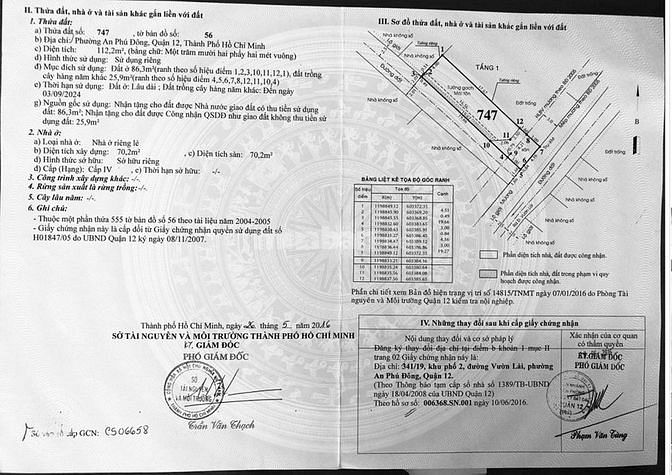 II. Thửa đất, nhà ở và tài sản khác gắn liền với đất
1. Thửa đất:
a) Thửa đất số: 747 , tờ bản đồ số: 56
b) Địa chỉ: Phường An Phú Đông, Quận 12, Thành Phố Hồ Chí Minh
c) Diện tích: 112,2m², (bằng chữ: Một trăm mười hai phẩy hai mét vuông)
d) Hình thức sử dụng: Sử dụng riêng
đ) Mục đích sử dụng: Đất ở 86,3m²(ranh theo số hiệu điểm 1,2,3,10,11,12,1), đất trồng
cây hàng năm khác 25,9m²(ranh theo số hiệu điểm 4,5,6,7,8,12,11,10,4)
e) Thời hạn sử dụng: Đất ở: Lâu dài ; Đất trồng cây hàng năm khác: Đến ngày
03/09/2024
g) Nguồn gốc sử dụng: Nhận tặng cho đất được Nhà nước giao đất có thu tiền sử dụng
đất: 86,3m²; Nhận tặng cho đất được Công nhận QSDĐ như giao đất không thu tiền sử
dụng đất: 25,9m²
2. Nhà ở:
a) Loại nhà ở: Nhà ở riêng lẻ
b) Diện tích xây dựng: 70,2m² , c) Diện tích sàn: 70,2m²
d) Hình thức sở hữu: Sở hữu riêng
đ) Cấp (Hạng): Cấp IV , e) Thời hạn sở hữu: -/-
3. Công trình xây dựng khác: -/-
4. Rừng sản xuất là rừng trồng: -/-
5. Cây lâu năm: -/-
6. Ghi chú:
- Thuộc một phần thửa 555 tờ bản đồ số 56 theo tài liệu năm 2004-2005
- Giấy chứng nhận này là cấp đổi từ Giấy chứng nhận quyền sử dụng đất số
H01847/05 do UBND Quận 12 ký ngày 08/11/2007.
Thành phố Hồ Chí Minh, ngày 26 tháng 5 năm 2016
SỞ TÀI NGUYÊN VÀ MÔI TRƯỜNG THÀNH PHỐ HỒ CHÍ MINH
KT. GIÁM ĐỐC
PHÓ GIÁM ĐỐC
SỞ
TÀI NGUYÊN
VÀ MÔI TRƯỜNG
Trần Văn Thạch
Số vào sổ cấp GCN: CS06658
III. Sơ đồ thửa đất, nhà ở và tài sản khác gắn liền với đất
Nhà không số
Tường riêng
TẦNG 1
Tường gạch
Mái tôn
747
Đất trống
Đường đất
Nhà không số
Tường riêng
Đất trống
B
BẢNG LIỆT KÊ TỌA ĐỘ GÓC RANH
Số hiệu điểm
Tọa độ
X(m)
Y(m)
Phần diện tích nhà, đất được công nhận.
Phần diện tích nhà, đất trong phạm vi quy
hoạch được công nhận.
Phần chi tiết xem Bản đồ hiện trạng vị trí số 14815/TNMT ngày 07/01/2016 do Phòng Tài
nguyên và Môi trường Quận 12 kiểm tra nội nghiệp.
IV. Những thay đổi sau khi cấp giấy chứng nhận
Nội dung thay đổi và cơ sở pháp lý
Xác nhận của cơ quan
có thẩm quyền
Đăng ký thay đổi địa chỉ tại điểm b khoản 1 mục II
trang 02 Giấy chứng nhận này là:
Địa chỉ: 341/19, khu phố 2, đường Vườn Lài, phường
An Phú Đông, Quận 12.
(Theo Thông báo tạm cấp số nhà số 1389/TB-UBND
ngày 18/04/2008 của UBND Quận 12)
Theo hồ sơ số: 006368.SN.001 ngày 10/06/2016.
KT.GIÁM ĐỐC
PHÓ GIÁM ĐỐC
QUẬN 12
Phạm Văn Tùng